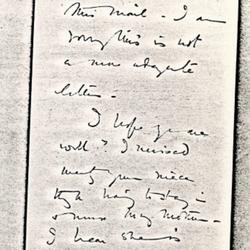 this mail - I am
sorry this is not
a more adequate
letter -
I hope you are
well? I missed
meeting your niece
I hear she is